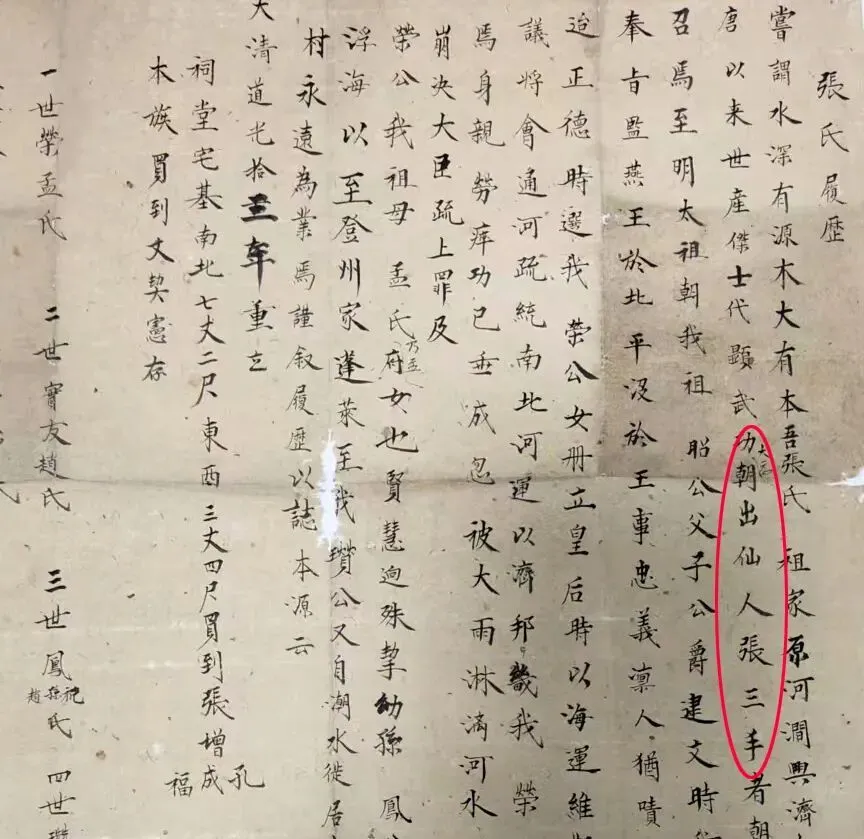 張氏履歷
嘗謂水深有源木大有本吾張氏祖家原河澗興濟
唐以来世産傑士代顯武功大元朝出仙人張三丰者朝
召焉至明太祖朝我祖 昭公父子公爵建文時
奉旨監燕王於北平沒於王事忠義凛人猶嘖
迨正德時選我 榮公女册立皇后時以海運維
議将會通河疏統南北河運以濟邦畿我榮
焉身親勞瘁功已垂成忽被大雨淋漓河水
崩決大臣疏上罪及
榮公我祖母孟氏乃孟府女也賢慧迥殊挈幼孫鳳
浮海以至登州家蓬萊至我瓚公又自潮水徙居
村永遠為業焉謹叙履歷以誌本源云
大清道光拾三年重立
祠堂宅基南北七丈二尺東西三丈四尺買到張增
孔成福
本族買到文契憲存
一世榮孟氏 二世寶友趙氏 三世鳳祝孫趙氏 四世瓚